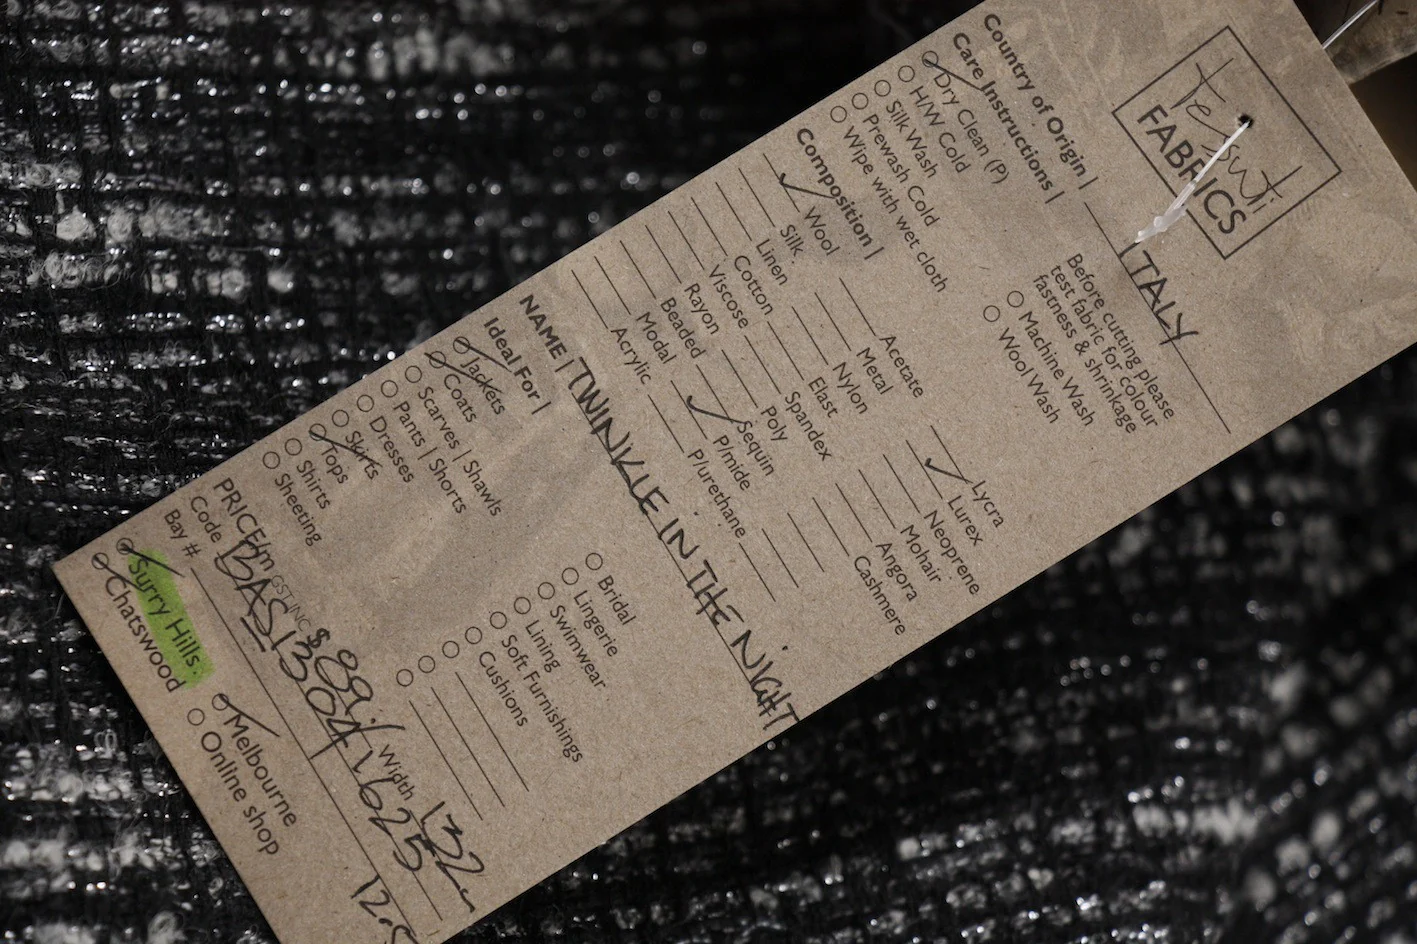 Tessuti
FABRICS
Country of Origin | ITALY
Care Instructions |
Dry Clean (P)
H/W Cold
Silk Wash
Prewash Cold
Wipe with wet cloth
Before cutting please
test fabric for colour
fastness & shrinkage
Machine Wash
Wool Wash
Composition |
Wool
Silk
Linen
Cotton
Viscose
Rayon
Beaded
Modal
Acrylic
Acetate
Metal
Nylon
Elast
Spandex
Poly
Sequin
P/mide
P/urethane
Lycra
Lurex
Neoprene
Mohair
Angora
Cashmere
NAME | TWINKLE IN THE NIGHT
Ideal For |
Jackets
Coats
Scarves | Shawls
Pants | Shorts
Dresses
Skirts
Tops
Shirts
Sheeting
Bridal
Lingerie
Swimwear
Lining
Soft Furnishings
Cushions
PRICE/m GST INC $ 89. Width 132
Code
Bay #
Surry Hills
Chatswood
Melbourne
Online shop